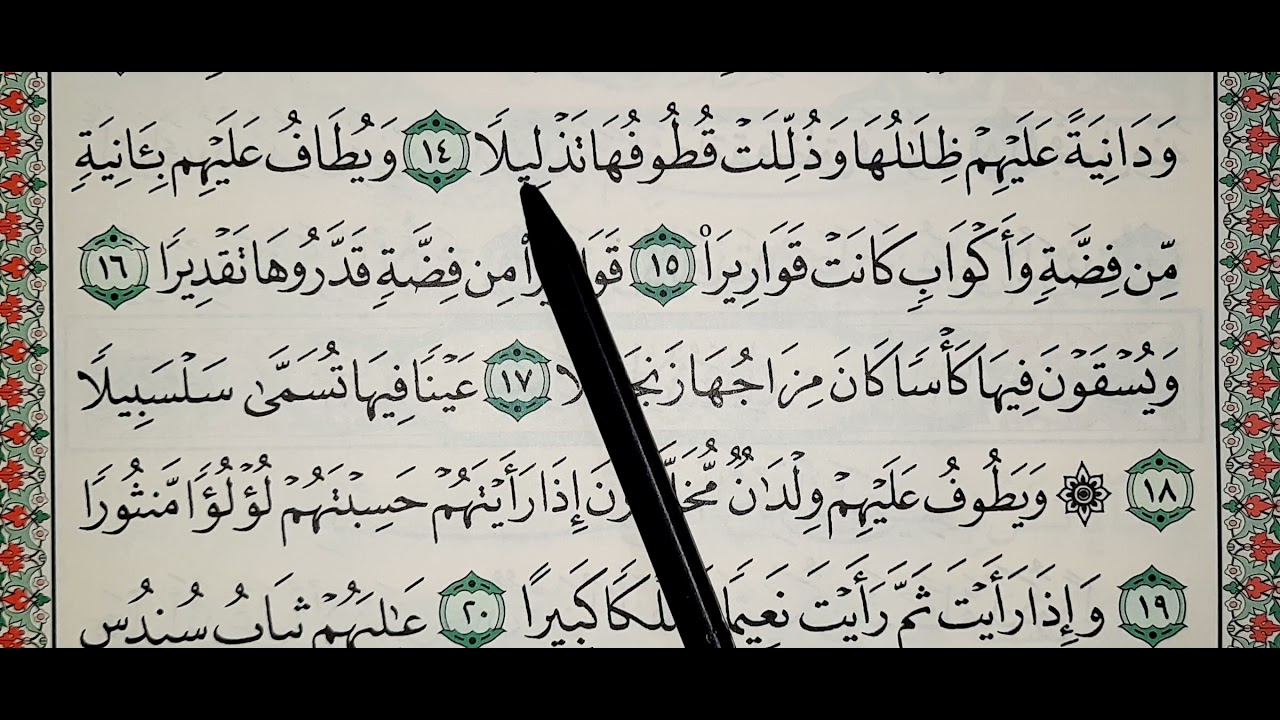 وَدَانِيَةً عَلَيْهِمْ ظِلَٰلُهَا وَذُلِّلَتْ قُطُوفُهَا تَذْلِيلًا ١٤ وَيُطَافُ عَلَيْهِم بِـَٔانِيَةٍ
مِّن فِضَّةٍ وَأَكْوَابٍ كَانَتْ قَوَارِيرَا۠ ١٥ مِن فِضَّةٍ قَدَّرُوهَا تَقْدِيرًا ١٦
وَيُسْقَوْنَ فِيهَا كَأْسًا كَانَ مِزَاجُهَا ١٧ عَيْنًا فِيهَا تُسَمَّىٰ سَلْسَبِيلًا
١٨ ۞ وَيَطُوفُ عَلَيْهِمْ وِلْدَٰنٌ إِذَا رَأَيْتَهُمْ حَسِبْتَهُمْ لُؤْلُؤًا مَّنثُورًا
١٩ وَإِذَا رَأَيْتَ ثَمَّ رَأَيْتَ كَبِيرًا ٢٠ عَٰلِيَهُمْ ثِيَابُ سُندُسٍ